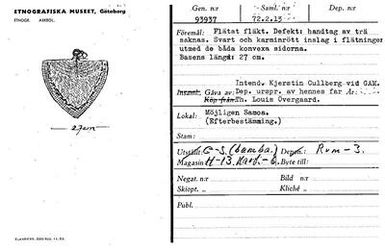 ETNOGRAFISKA MUSEET, Göteborg
ETNOGR. AMBOL.
27 cm
Gen. n:r
93937
Sam. n:r
72.2.15
Föremål: Flätat fläkt. Defekt: handtag av trä
saknas. Svart och karminrött inslag i flätningen
utmed de båda konvexa sidorna.
Basens längd: 27 cm.
Intend. Kjerstin Cullberg vid GAM.
Insaml: Gåva av: Dep. urspr. av hennes far År:
Köp från: Th. Louis Overgaard.
Lokal: Möjligen Samoa.
(Efterbestämning.)
Stam:
Utställt: G-S. (bamba.) Depon.: Rum-3.
Magasin H-13. -6. Byte till:
Negat. n:r Bild n:r
Skiopt. n:r Kliché n:r
Publ.